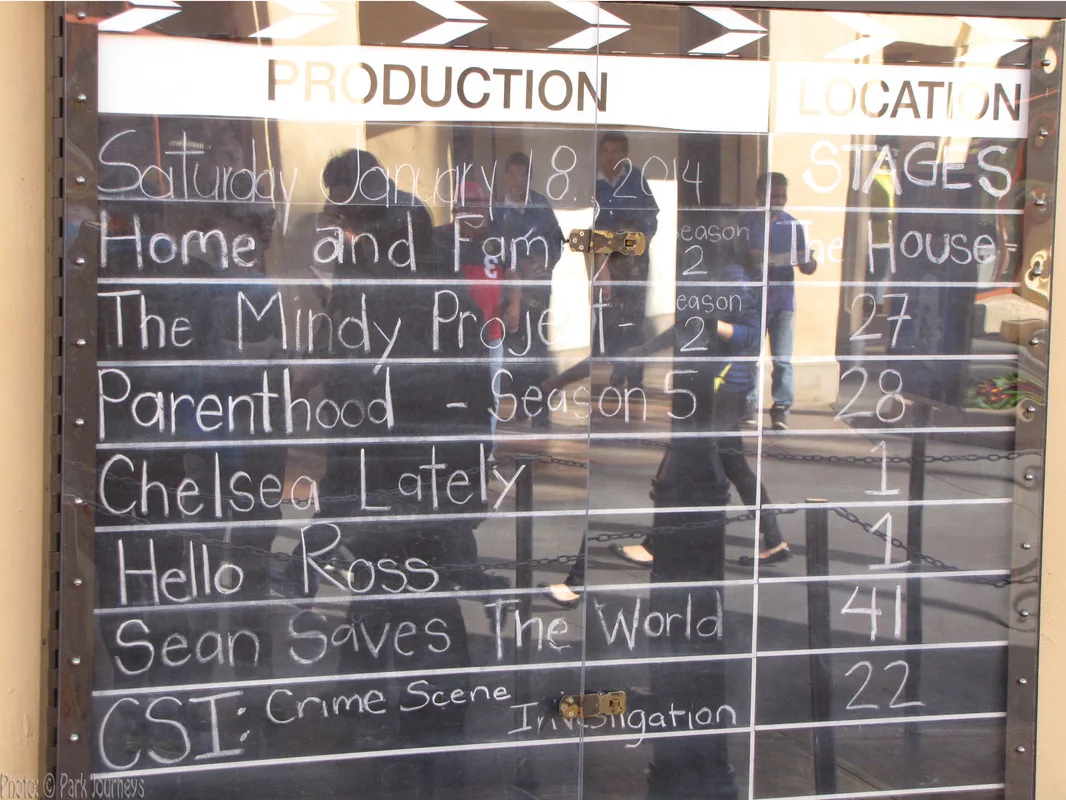 PRODUCTION LOCATION
Saturday January 18, 2014 STAGES
Home and Fam Season 2 The House
The Mindy Project - Season 2 27
Parenthood - Season 5 28
Chelsea Lately 1
Hello Ross 1
Sean Saves The World 41
CSI: Crime Scene Investigation 22
Photo: © Park Journeys